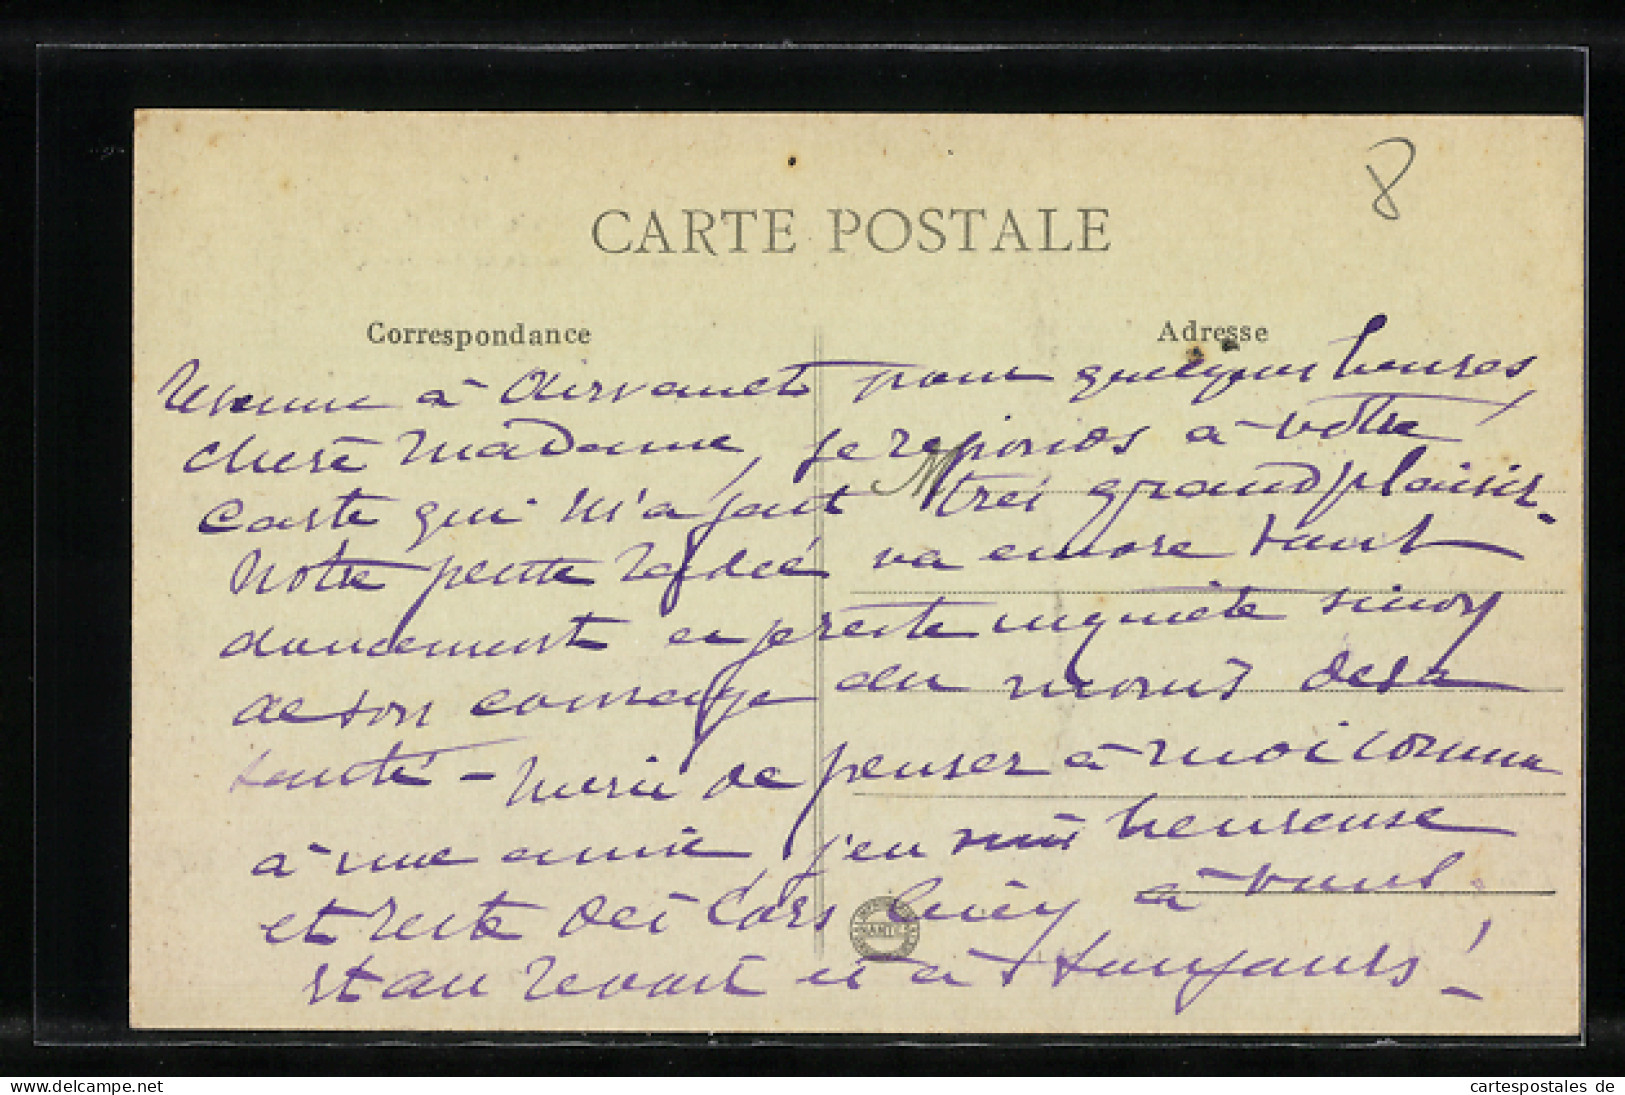 8
CARTE POSTALE
Correspondance
Adresse
Revenue à Airvault pour quelques heures,
chère Madame, je réponds à votre
carte qui m'a fait très grand plaisir.
Notre petite va encore tout
doucement et je reste inquiète sinon
de son courage du moins de sa
santé - Merci de penser à moi comme
à une amie, j'en suis heureuse
et reste dès lors bien à vous
et au revoir et à toujours !
M
NANTES
delcampe.net
cartespostales de